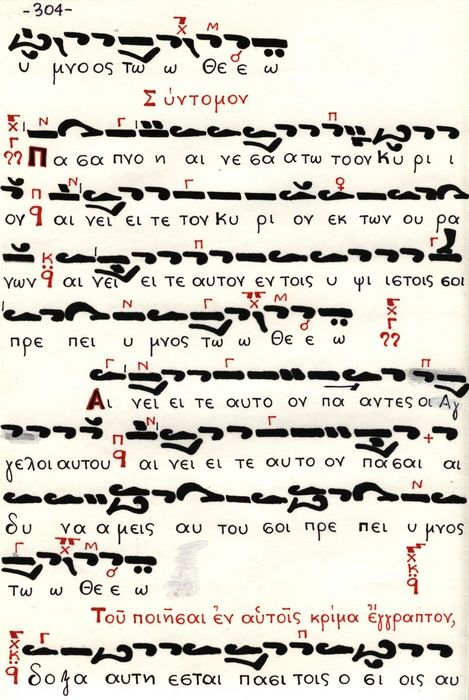 -304-
υ μνο ος τω ω Θε ε ω
Σύντομον
Πα σα πνο η αι νε σα α τω το ον Κυ ρι ι
ον αι νει ει τε τον Κυ ρι ον εκ των ου ρα
νων αι νει ει τε αυτον εν τοις υ ψι ιστοις σοι
πρε πει υ μνος τω ω Θε ε ω
Αι νει ει τε αυτο ον πα αντες οι Αγ
γελοι αυτου αι νει ει τε αυ το ον πασαι αι
δυ να α μεις αυ του σοι πρε πει υ μνος
τω ω Θε ε ω
Τοῦ ποιῆσαι ἐν αὐτοῖς κρίμα ἔγγραπτον,
δοξα αυτη εσται πασι τοις ο σι οις αυ